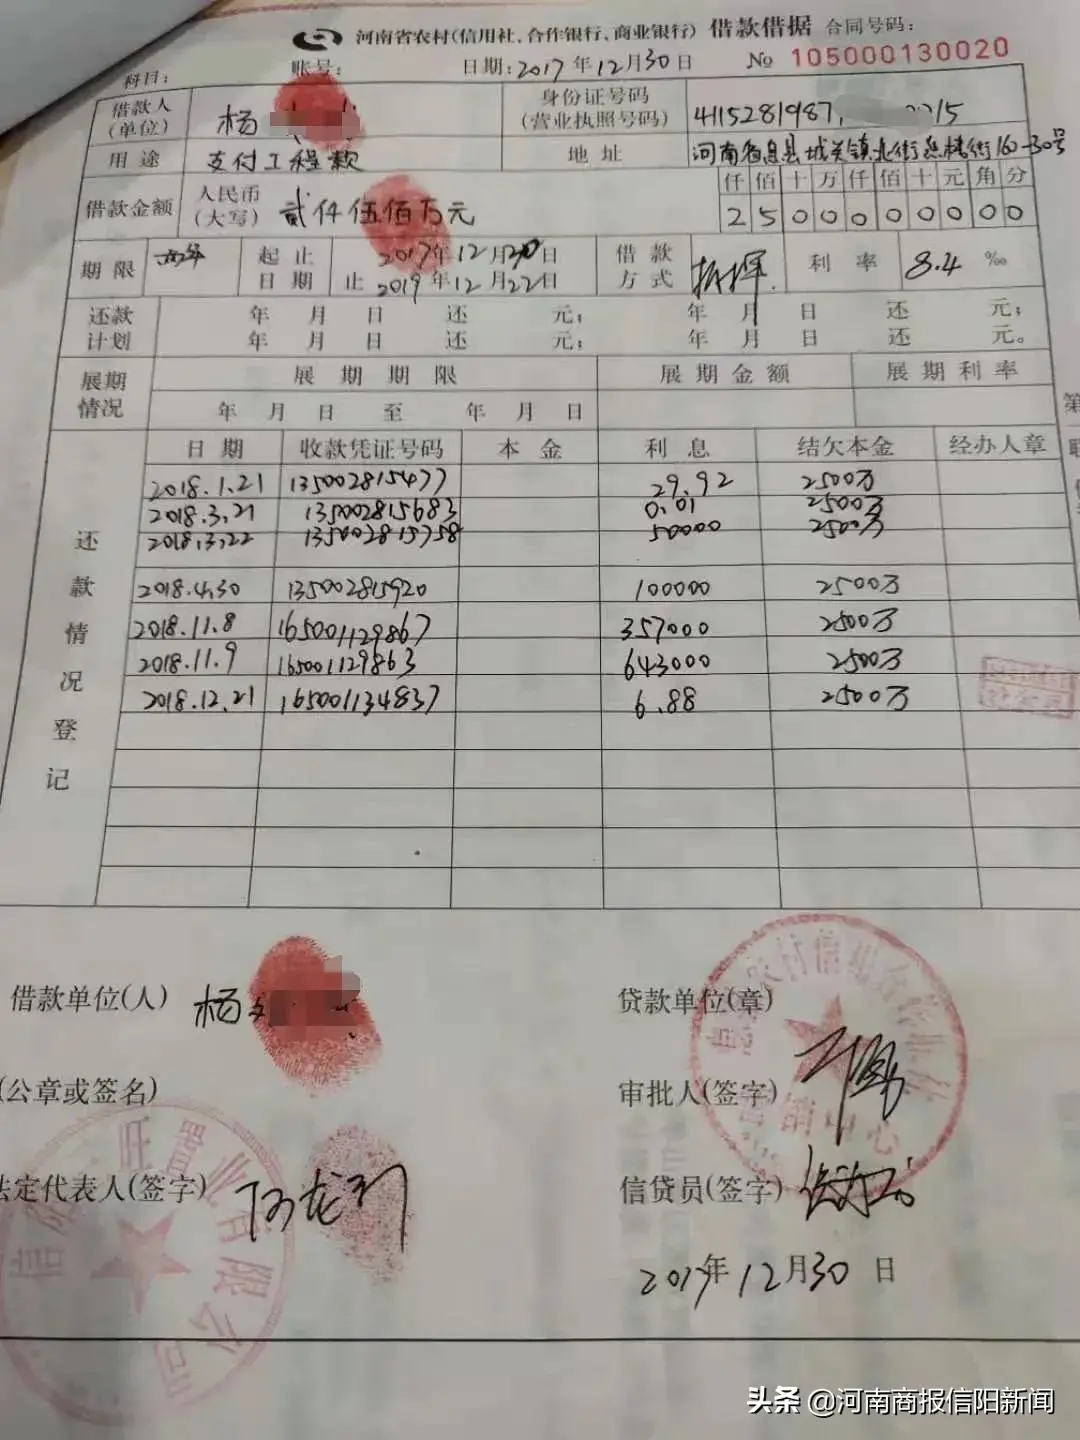 河南省农村(信用社、合作银行、商业银行) 借款借据 合同号码:
科目: 账号: 日期:2017年12月30日 № 105000130020
借款人(单位) 杨 身份证号码(营业执照号码) 4115281987 215
用途 支付工程款 地址 河南省息县城关镇北街 街160-30号
借款金额 人民币(大写) 贰仟伍佰万元 仟佰十万仟佰十元角分
2500000000
期限 两年 起止日期 2017年12月30日 借款方式 利率 8.4‰
止 2019年12月22日
还款计划 年 月 日 还 元; 年 月 日 还 元;
年 月 日 还 元; 年 月 日 还 元。
展期情况 展期期限 展期金额 展期利率
年 月 日 至 年 月 日
还款情况登记
日期 收款凭证号码 本金 利息 结欠本金 经办人章
2018.1.21 135002815477 29.92 2500万
2018.3.21 135002815683 0.01 2500万
2018.3.22 135002815758 50000 2500万
2018.4.30 135002815920 100000 2500万
2018.11.8 165001129867 357000 2500万
2018.11.9 165001129863 643000 2500万
2018.12.21 165001134837 6.88 2500万
借款单位(人) 杨 贷款单位(章)
(公章或签名) 审批人(签字)
法定代表人(签字) 信贷员(签字)
2017年12月30日
信阳 旺置业有限公司
农村信用合作联社
营销中心
头条 @河南商报信阳新闻